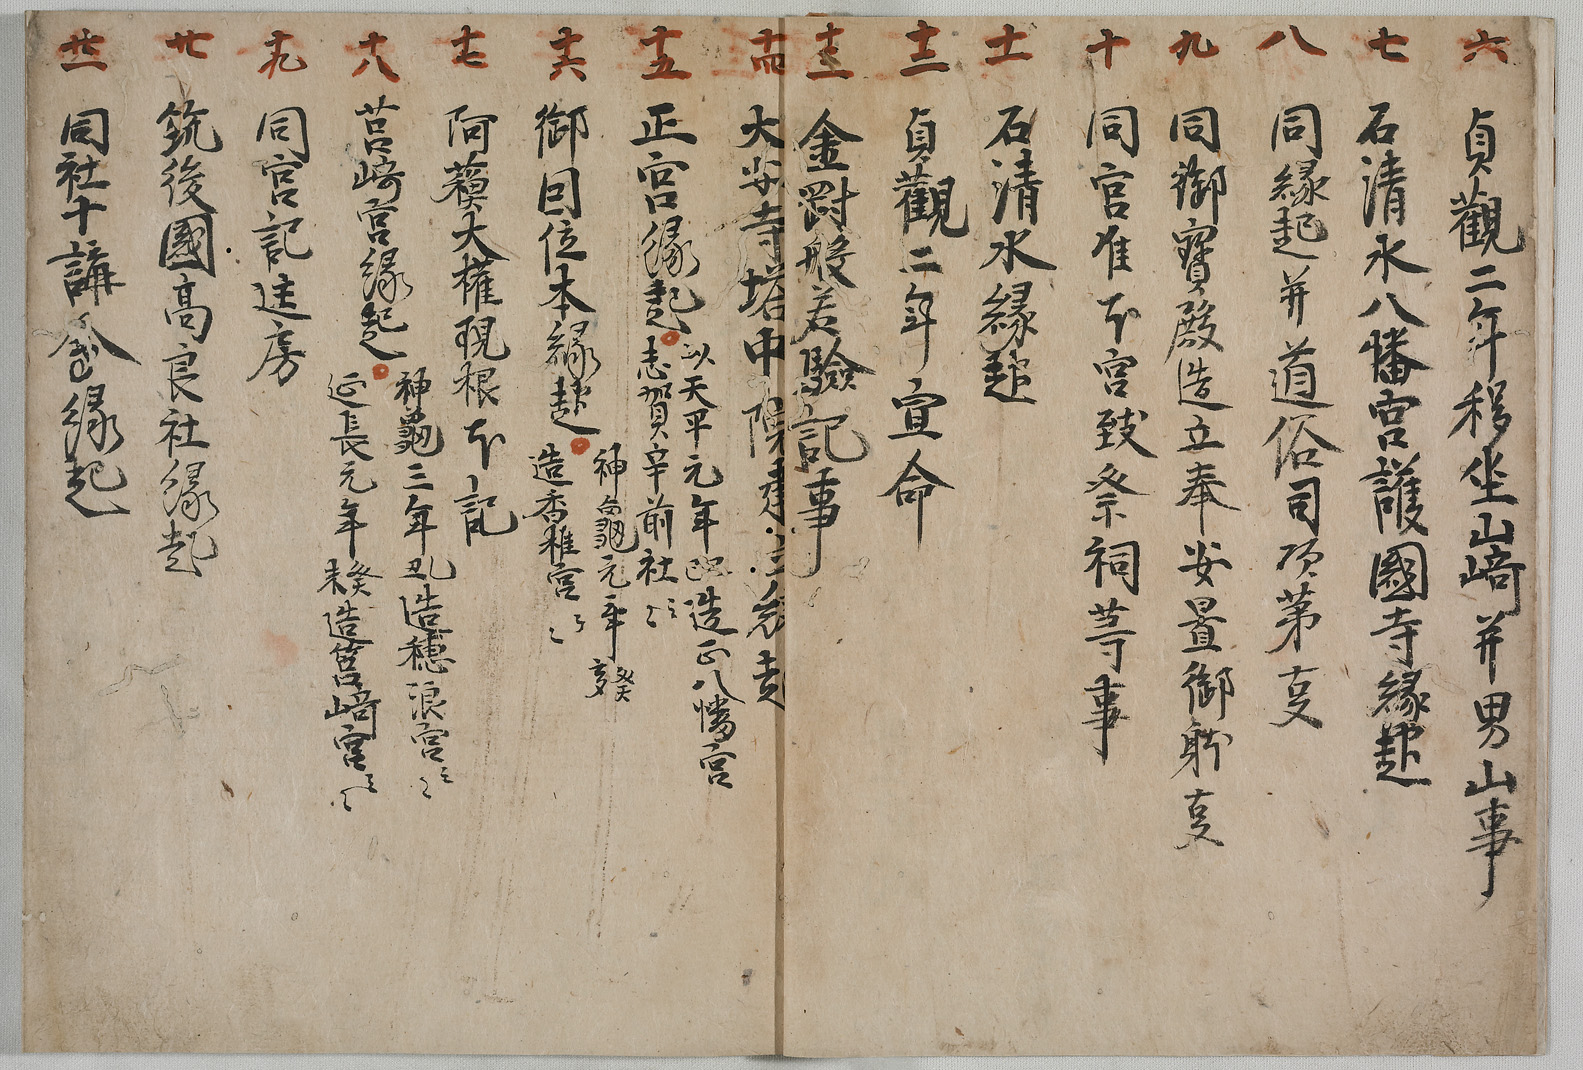 六 貞觀二年移坐山﨑并男山事
七 石清水八幡宮護國寺縁起
八 同縁起并道俗司次第事
九 同御寶殿造立奉安置御躰事
十 同宮准本宮致祭祠等事
十一 石清水縁起
十二 貞觀二年宣命
十三 金剛般若驗記事
十四 大安寺塔中院建立縁起
十五 正宮縁起
以天平元年造正八幡宮
志賀宰前社云々
十六 御因位本縁起
神龜元年癸亥
造香椎宮云々
十七 阿蘓大權現根本記
十八 筥﨑宮縁起
神龜三年造穗浪宮云々
延長元年癸未造筥﨑宮云々
十九 同宮記
廿 筑後國高良社縁起
廿一 同社十講會縁起